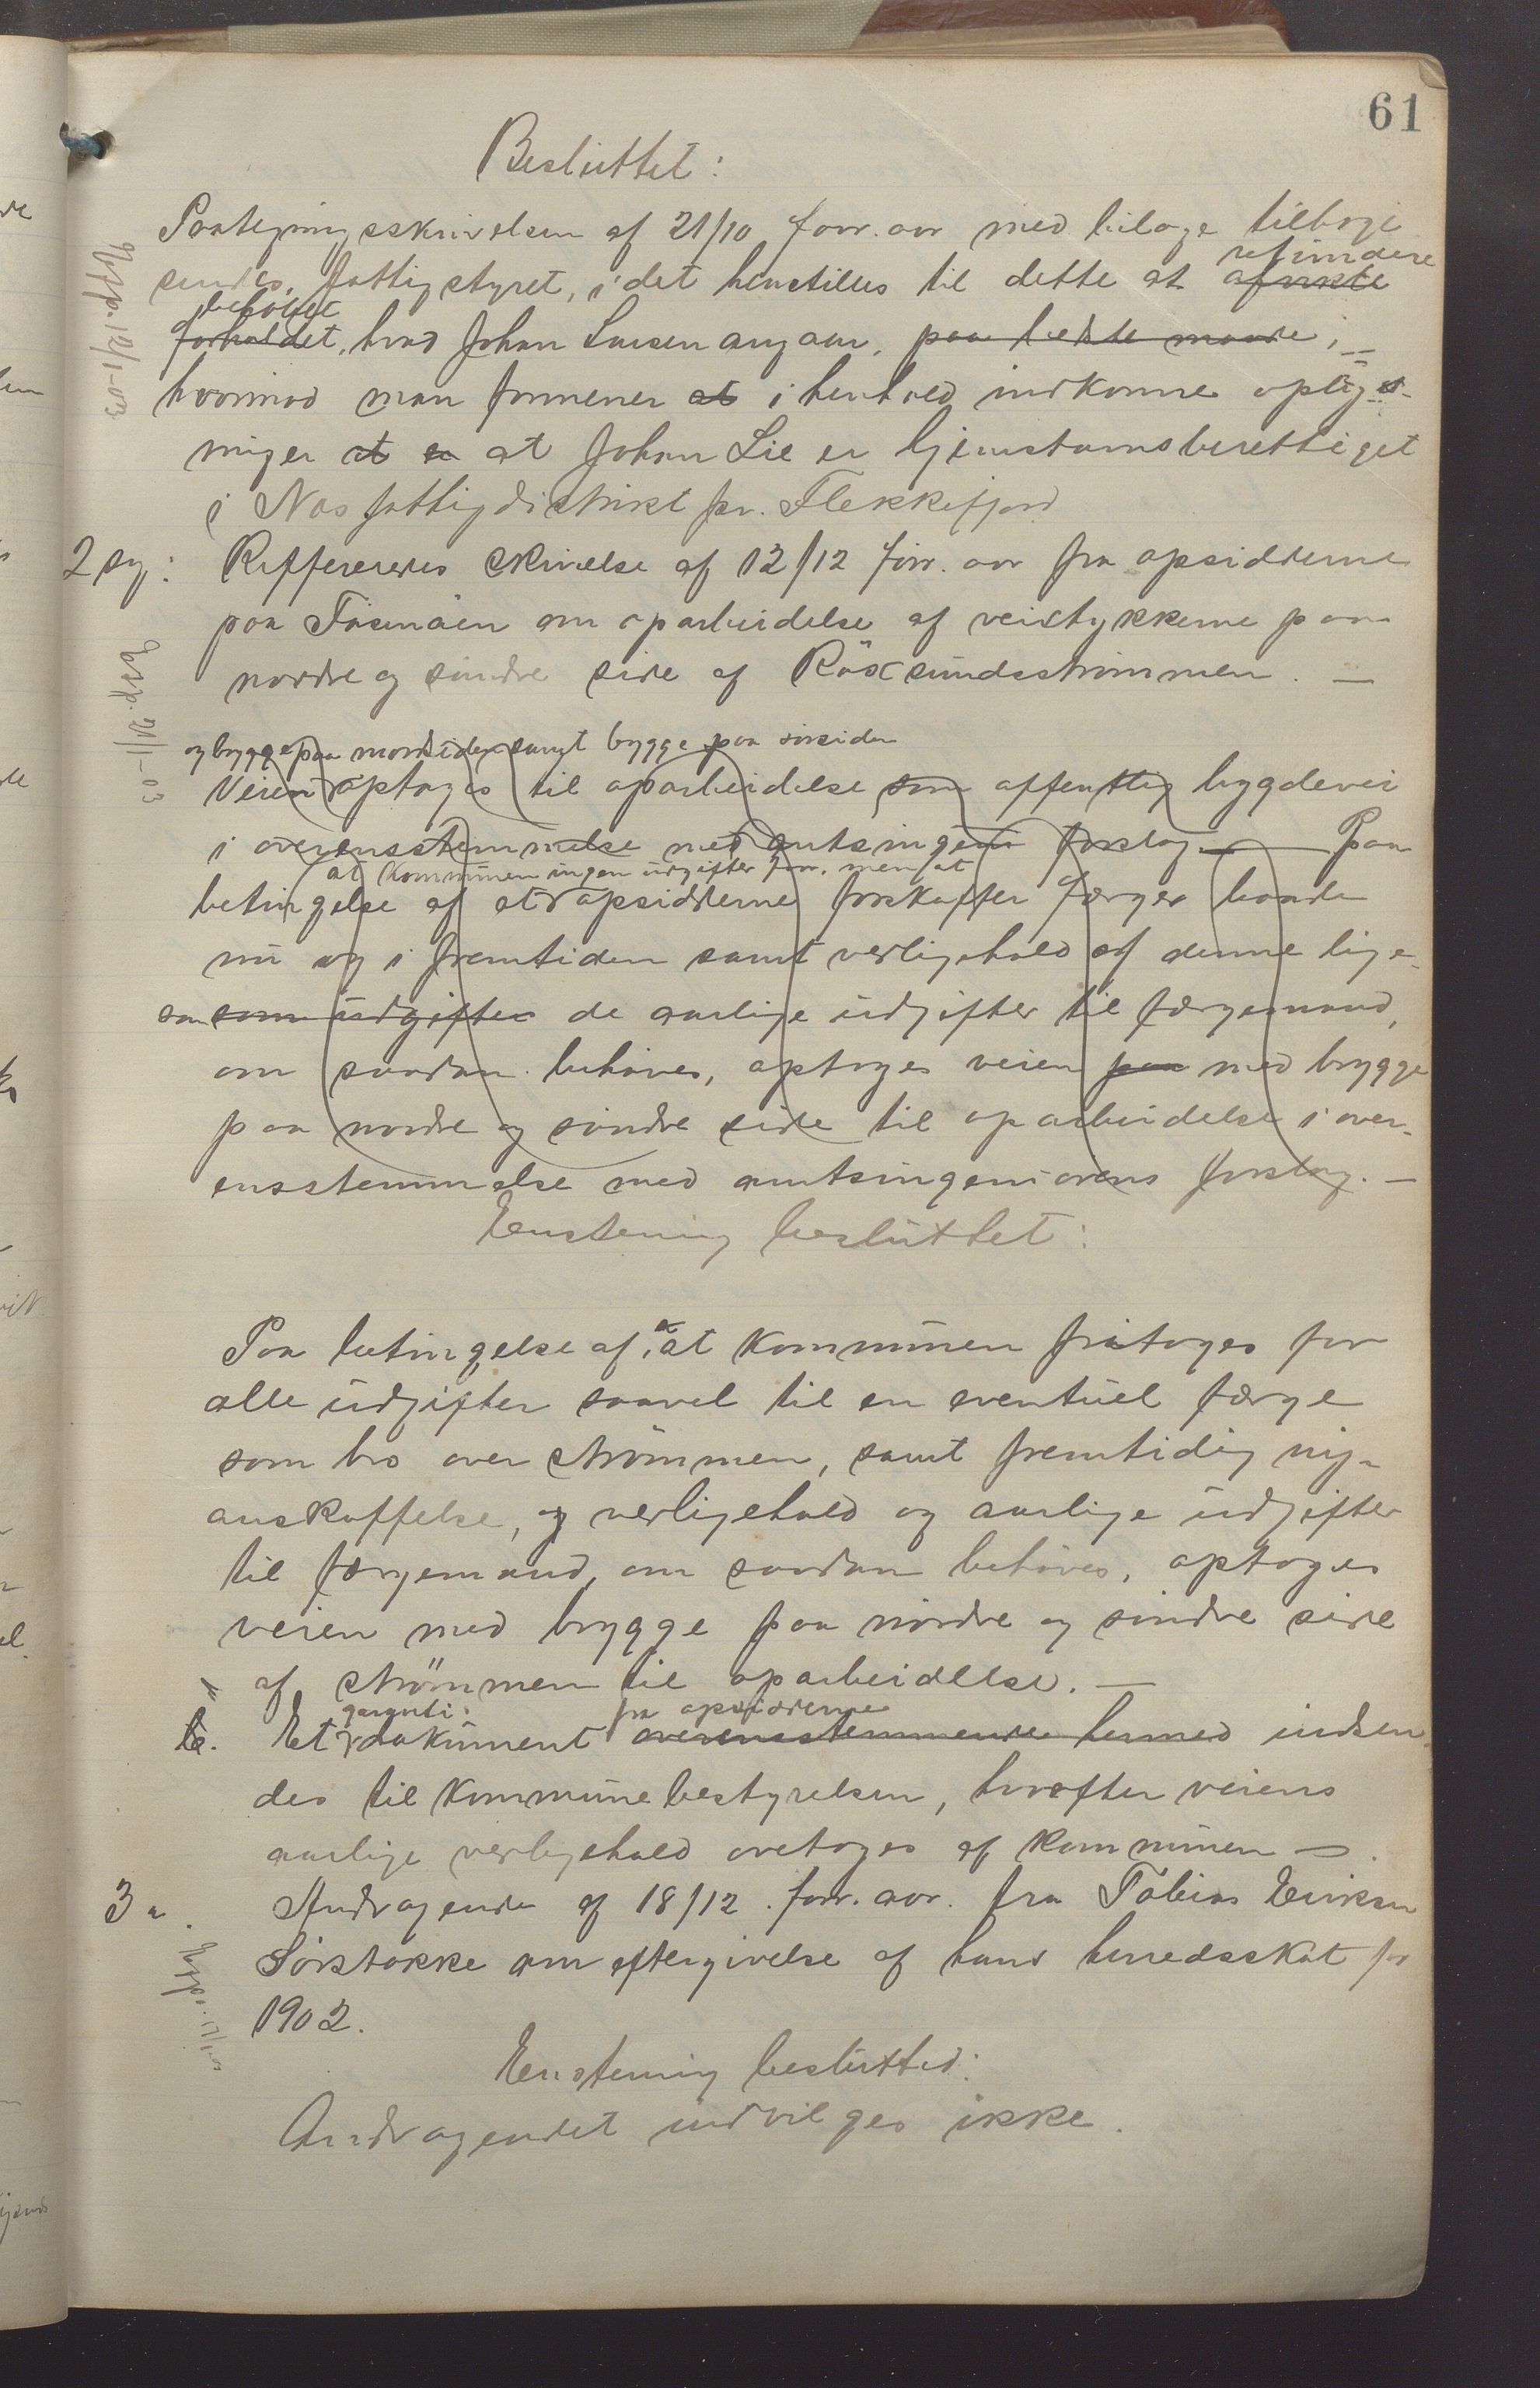 61
Besluttet:
Paategningsskrivelsen af 21/10 forr. aar med bilage tilbage
sendes fattigstyret, i det henstilles til dette at afvente refundere
forholdet beløbet, hvad Johan Larsen angaar, paa bedste maade,
hvorimod man formener at i henhold indkomne oplys-
ninger at er at Johan Lie er hjemstamsberettiget
i Næs fattigdistrikt pr. Flekkefjord
2 sag: Reffereredes skrivelse af 12/12 forr. aar fra opsidderne
paa Fosenøen om oparbeidelse af veistykkerne paa
nordre og søndre side af Røksundsstrømmen. —
og brygge paa nordsiden samt brygge paa sørsiden
Veien optages til oparbeidelse som offentlig bygdevei
i overensstemmelse med amtsingens forslag — Paa
at kommunen ingen udgifter faar, men at
betingelse af at opsidderne forskaffer færger baade
nu og i fremtiden samt vedligehold af denne lige-
saa som udgifter de aarlige udgifter til færgemand,
om saadan behøves, optages veien paa med brygge
paa nordre og søndre side til oparbeidelse i over-
ensstemmelse med amtsingeniørens forslag. —
Enstemig besluttet:
Paa betingelse af, a at kommunen fritages for
alle udgifter saavel til en eventuel færge
som bro over strømmen, samt fremtidig ny-
anskaffelse, og vedligehold og aarlige udgifter
til færgemand, om saadan behøves, optages
veien med brygge paa nordre og søndre side
af strømmen til oparbeidelse. —
garanti: fra opsidderne
b. Et dokument overensstemmende hermed indsen-
des til kommunebestyrelsen, hvorefter veiens
aarlige vedligehold overtages af kommunen —.
3 s. Andragende af 18/12 forr. aar. fra Tobias Eriksen
Sørstokke om eftergivelse af hans herredsskat for
1902.
Enstemig besluttet:
Andragendet indvilges ikke.
Exp. 12/1-03
Exp. 12/1-03
Exp. 12/1-03